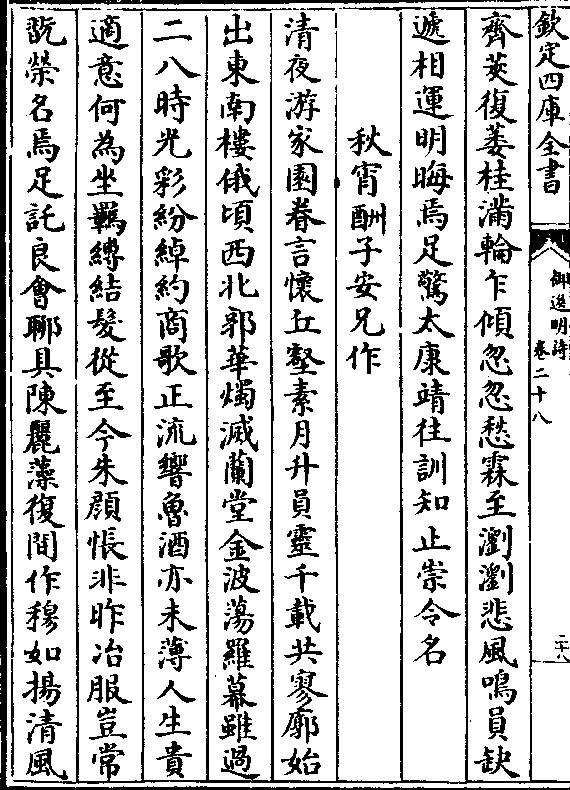 欽定四庫全書
御選明詩
卷二十八
二十八
齊莢復萎桂滿輪乍傾忽忽愁霖至瀏瀏悲風鳴員缺
遞相運明晦焉足驚太康靖往訓知止崇令名
秋宵酬子安兄作
清夜游家園眷言懷丘壑素月升員靈千載共寥廓始
出東南樓俄頃西北郭華燭滅蘭堂金波蕩羅幕雖過
二八時光彩紛綽約商歌正流響魯酒亦未薄人生貴
適意何為坐羈縛結髮從至今朱顔悵非昨冶服豈常
翫榮名焉足託良會聊具陳麗藻復間作穆如揚清風